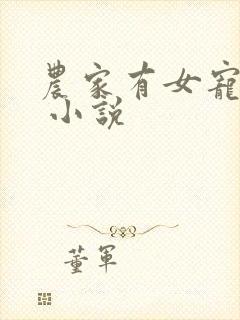 農家有女寵
小說
董軍